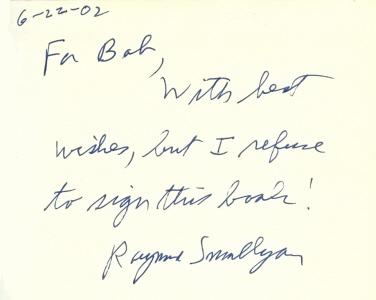 6-22-02
For Bob,
With best
wishes, but I refuse
to sign this book!
Raymond Smullyan